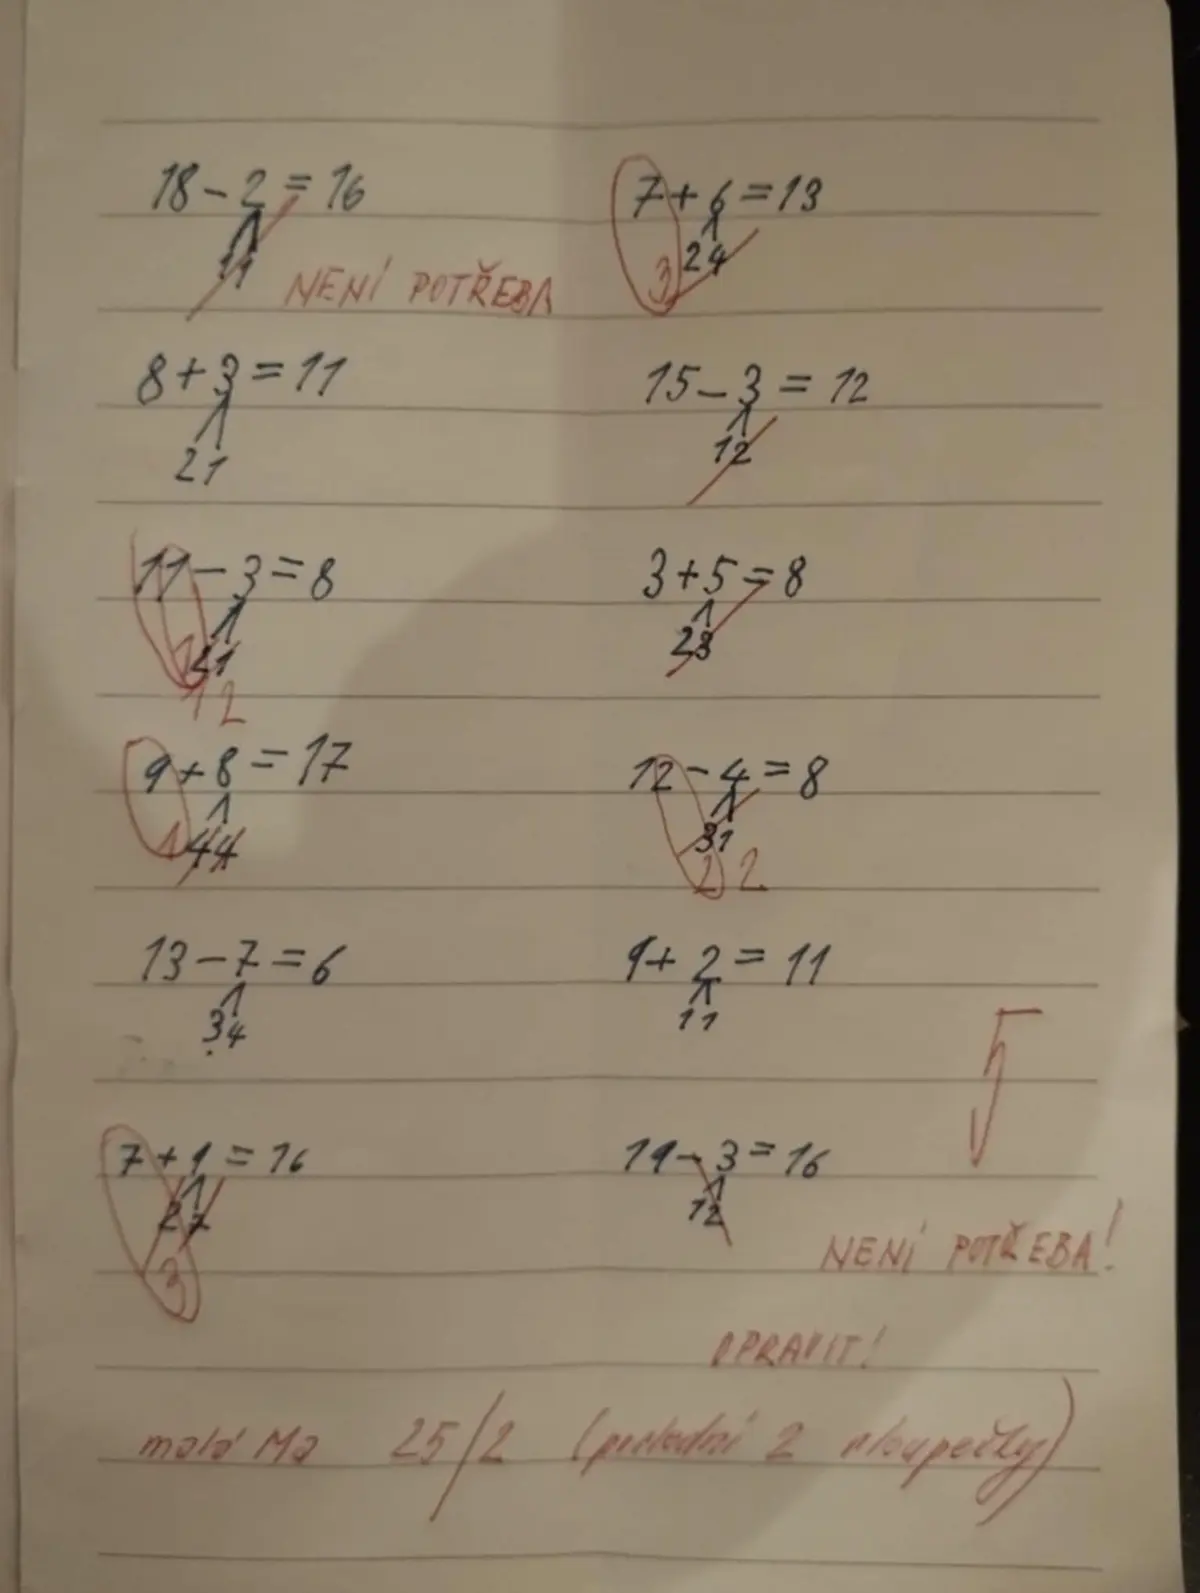 18 - 2 = 16
11
NENÍ POTŘEBA
8 + 3 = 11
21
11 - 3 = 8
21
1 2
9 + 8 = 17
1 44
13 - 7 = 6
34
7 + 9 = 16
27
3
7 + 6 = 13
3 24
15 - 3 = 12
12
3 + 5 = 8
23
12 - 4 = 8
31
2 2
9 + 2 = 11
11
5
19 - 3 = 16
12
NENÍ POTŘEBA!
OPRAVIT!
malá Ma 25/2 (poslední 2 sloupečky)